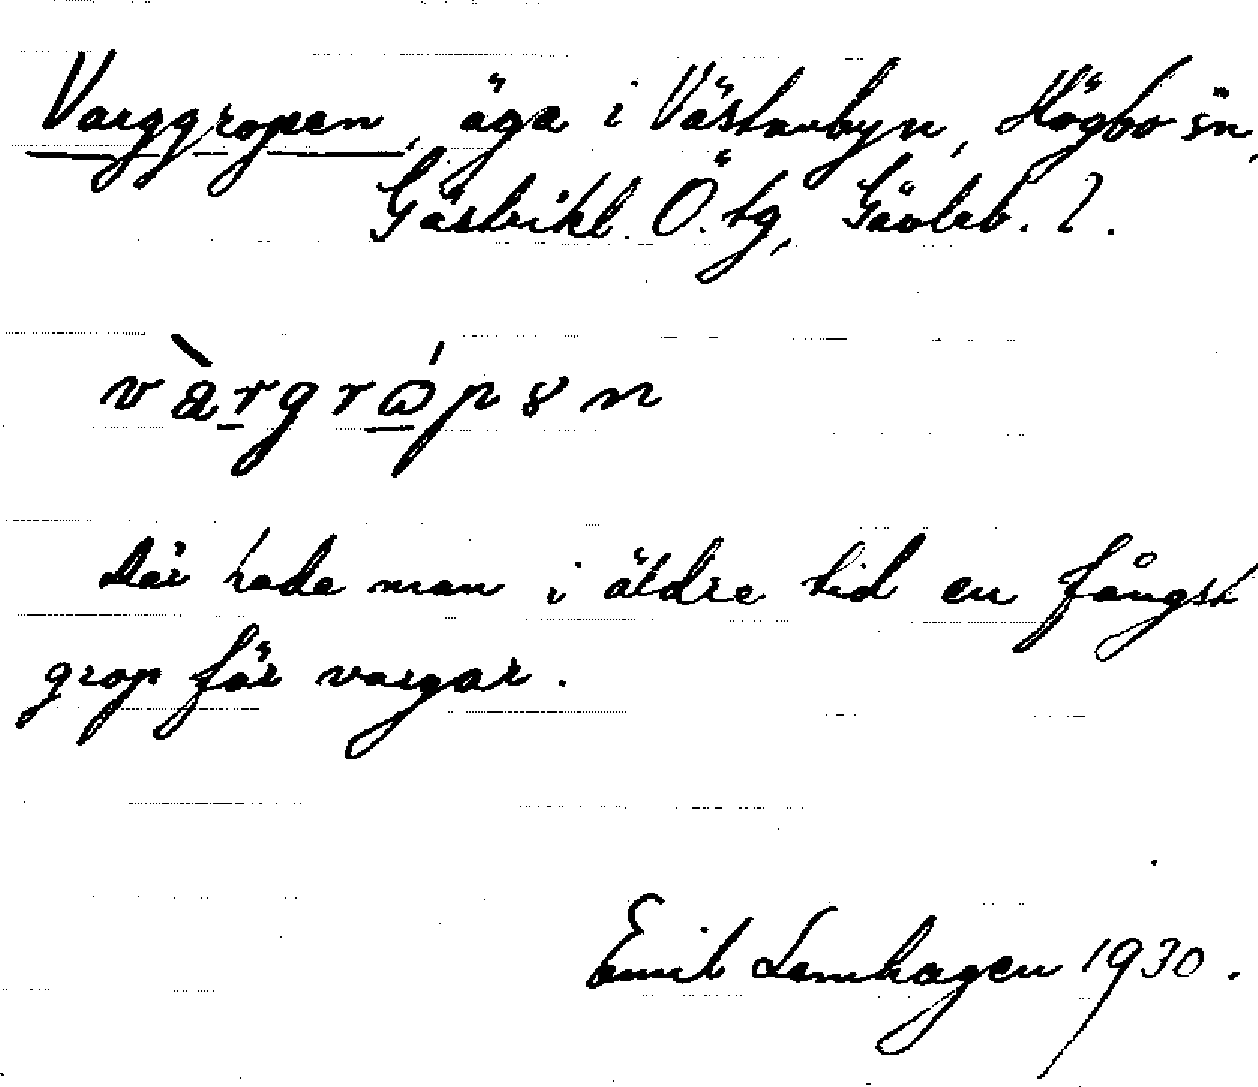 Varggropen, äga i Västanbyn, Högbo sn,
Gästrikl. Ö. tg, Gävleb. l.
vàrgrǿpən
Där hade man i äldre tid en fångst
grop för vargar.
Emil Lemhagen 1930.